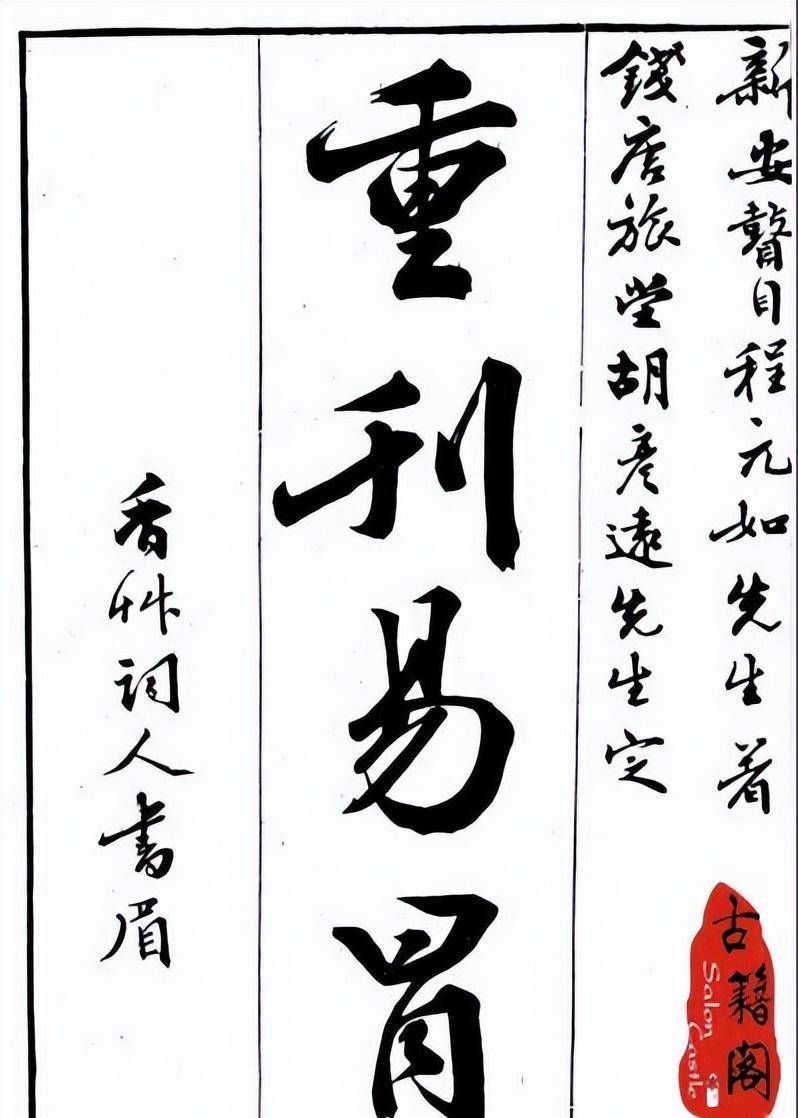 新安瞽目程元如先生著
錢唐旅堂胡彥遠先生定
重刊易冒
香艸詞人書眉
古籍阁
Salon Castle